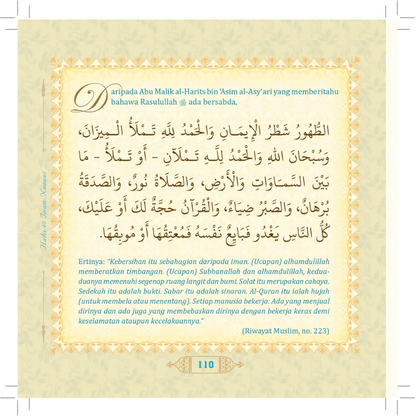 Daripada Abu Malik al-Harits bin 'Asim al-Asy'ari yang memberitahu
bahawa Rasulullah ﷺ ada bersabda,
الطُّهُورُ شَطْرُ الْإِيمَـانِ وَالْحَمْدُ لِلَّهِ تَـمْلَأُ الْـمِيزَانَ،
وَسُبْحَانَ اللهِ وَالْحَمْدُ لِلَّـهِ تَـمْلَآنِ – أَوْ تَـمْلَأُ – مَا
بَيْنَ السَّمَـاوَاتِ وَالْأَرْضِ، وَالصَّلَاةُ نُورٌ، وَالصَّدَقَةُ
بُرْهَانٌ، وَالصَّبْرُ ضِيَاءٌ، وَالْقُرْآنُ حُجَّةٌ لَكَ أَوْ عَلَيْكَ،
كُلُّ النَّاسِ يَغْدُو فَبَايِعٌ نَفْسَهُ فَمُعْتِقُهَا أَوْ مُوبِقُهَا.
Ertinya: "Kebersihan itu sebahagian daripada iman. (Ucapan) alhamdulillah
memberatkan timbangan. (Ucapan) Subhanallah dan alhamdulillah, kedua-
duanya memenuhi segenap ruang langit dan bumi. Solat itu merupakan cahaya.
Sedekah itu adalah bukti. Sabar itu adalah sinaran. Al-Quran itu ialah hujah
(untuk membela atau menentang). Setiap manusia bekerja: Ada yang menjual
dirinya dan ada juga yang membebaskan dirinya dengan bekerja keras demi
keselamatan ataupun kecelakaannya."
(Riwayat Muslim, no. 223)
110